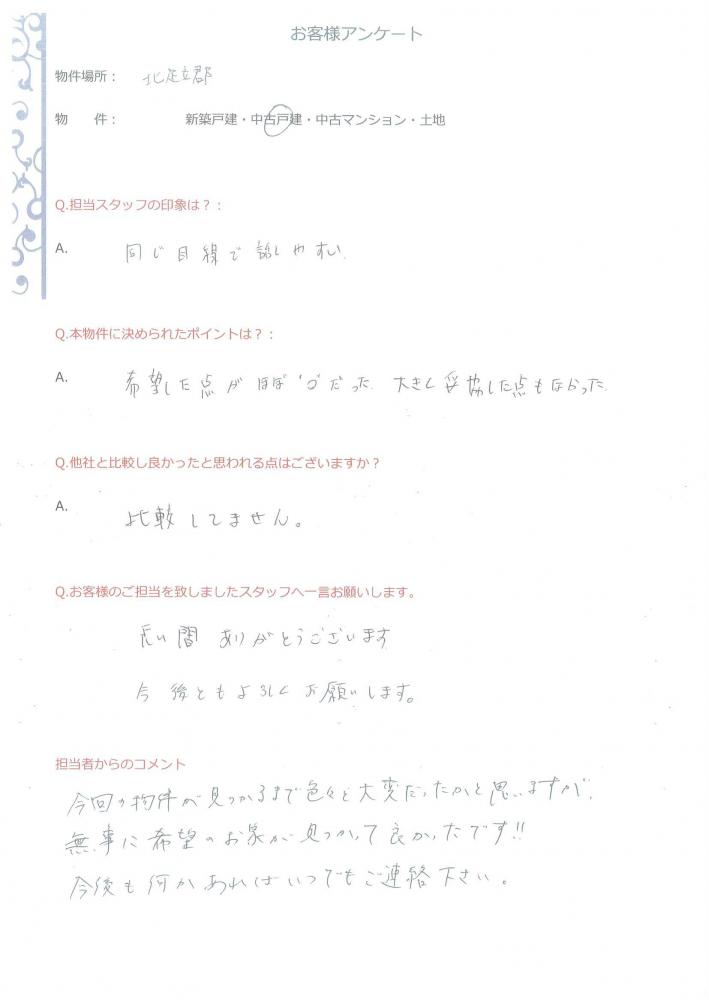 お客様アンケート
物件場所： 北足立郡
物　件： 新築戸建・中古戸建・中古マンション・土地
Q.担当スタッフの印象は？：
A. 同じ目線で話しやすい
Q.本物件に決められたポイントは？：
A. 希望した点がほぼ だった 大きく妥協した点もなかった
Q.他社と比較し良かったと思われる点はございますか？
A. 比較してません。
Q.お客様のご担当を致しましたスタッフへ一言お願いします。
長い間 ありがとうございます
今後ともよろしくお願いします。
担当者からのコメント
今回の物件が見つかるまで色々と大変だったかと思いますが、
無事に希望のお家が見つかって良かったです!!
今後も何かあればいつでもご連絡下さい。